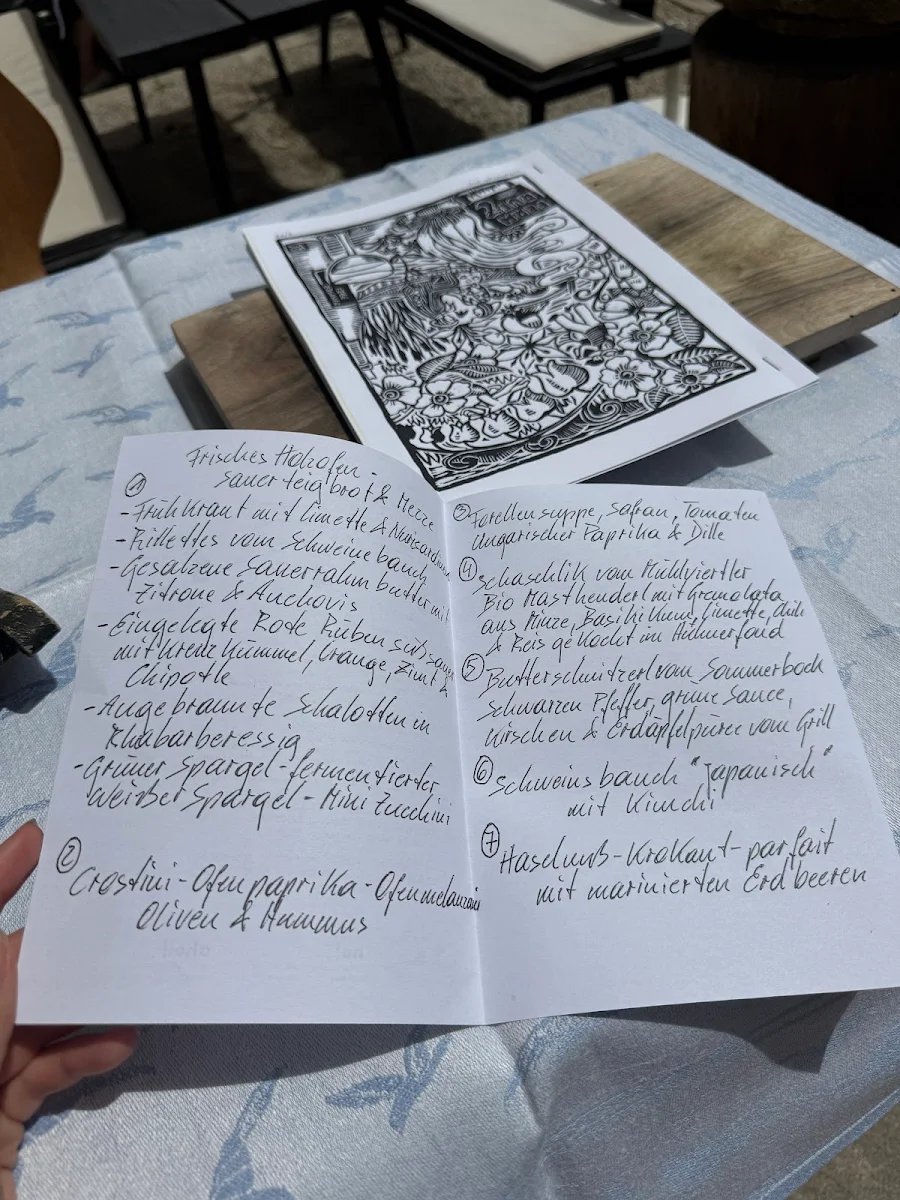 Frisches Holzofen-
sauerteigbrot & Mezze
①
- Frühkraut mit Limette &
- Rillettes vom Schweinebauch
- Gesalzene Sauerrahmbutter mit
Zitrone & Anchovis
- Eingelegte Rote Rüben süß sauer
mit Kreuzkümmel, Orange, Zimt &
Chipotle
- Angebrannte Schalotten in
Rhabarberessig
- Grüner Spargel - fermentierter
weißer Spargel - Mini Zucchini
②
Crostini - Ofenpaprika - Ofenmelanzani
Oliven & Hummus
③ Forellensuppe, Safran, Tomaten
Ungarischer Paprika & Dille
④ Schaschlik vom Mühlviertler
Bio Masthenderl mit Gramolata
aus Minze, Basilikum, Limette, Chili
& Reis gekocht im Hühnerfond
⑤ Butterschnitzerl vom Sommerbock
Schwarzen Pfeffer, grüne Sauce,
Kirschen & Erdäpfelpüree vom Grill
⑥ Schweinsbauch "Japanisch"
mit Kimchi
⑦ Haselnuß-Krokant-parfait
mit marinierten Erdbeeren